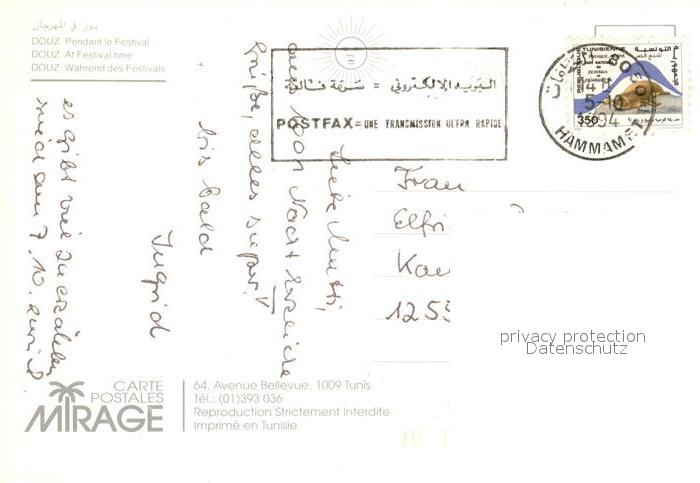 دوز في المهرجان
DOUZ Pendant le Festival
DOUZ At Festival time
DOUZ Während des Festivals
البريد الإلكتروني = سرعة فائقة
POSTFAX = UNE TRANSMISSION ULTRA RAPIDE
REPUBLIQUE TUNISIENNE
350
5-10
1994
HAMMAMET
Liebe Mutti,
aus 1001 Nacht herzliche
Grüße, alles super!
bis bald
Ingrid
es gibt viel zu erzählen
sind am 7.10. zurück
Frau
Elfri
Kau
1255
privacy protection
Datenschutz
CARTE
POSTALES
MIRAGE
64, Avenue Bellevue, 1009 Tunis
Tél.: (01)393 036
Reproduction Strictement interdite
Imprimé en Tunisie